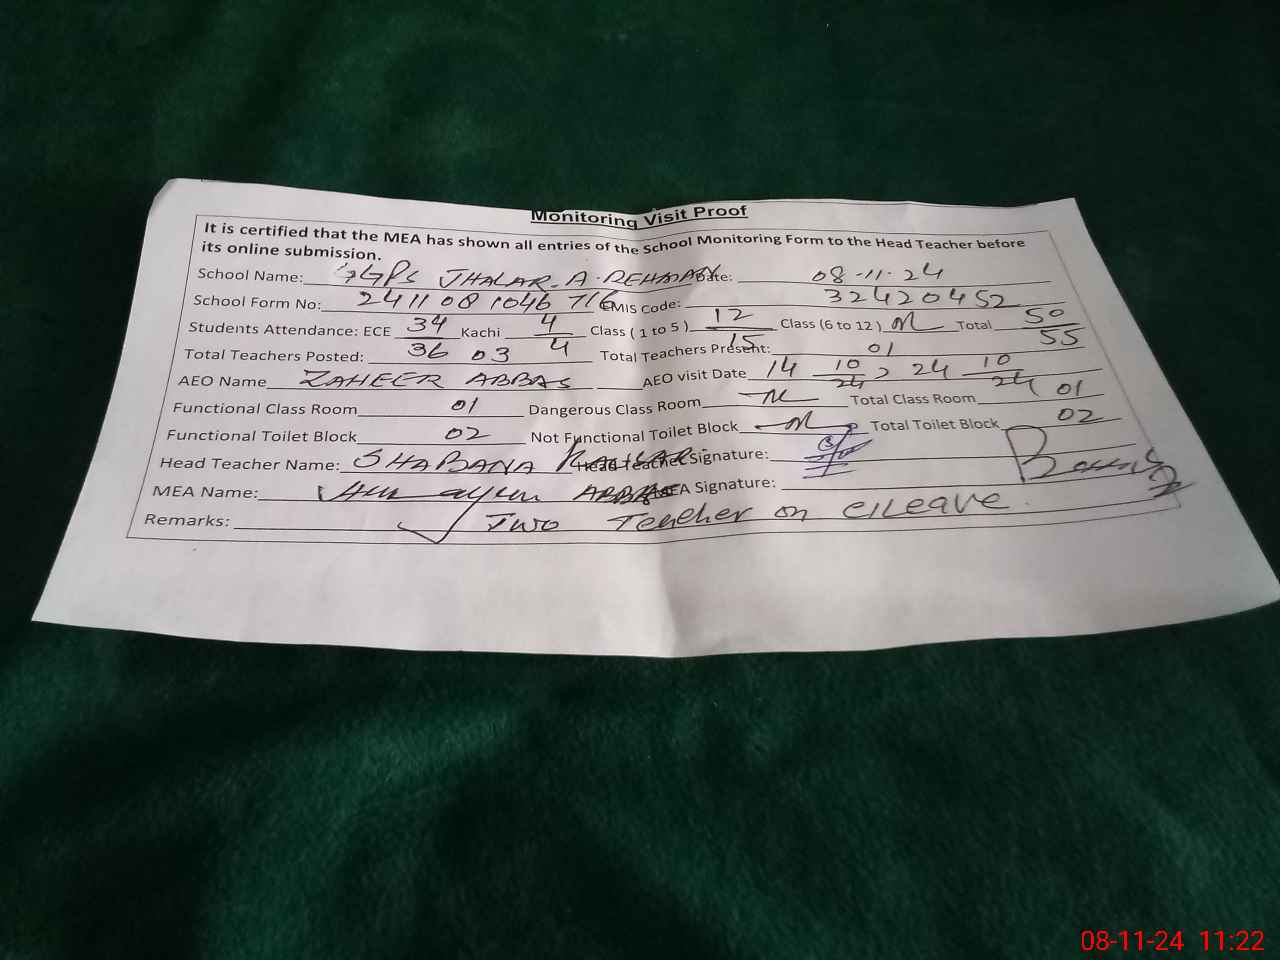 Monitoring Visit Proof
It is certified that the MEA has shown all entries of the School Monitoring Form to the Head Teacher before
its online submission.
School Name: GGPS JHALAR.A.REHMAN Date: 08-11-24
School Form No: 2411081046716 EMIS Code: 32420452
Students Attendance: ECE 34/36 Kachi 4/4 Class (1 to 5) 12/15 Class (6 to 12) Total 50/55
Total Teachers Posted: 03 Total Teachers Present: 01
AEO Name ZAHEER ABBAS AEO visit Date 14 10/24 > 24 10/24
Functional Class Room 01 Dangerous Class Room Total Class Room 01
Functional Toilet Block 02 Not Functional Toilet Block Total Toilet Block 02
Head Teacher Name: SHABANA Head Teacher Signature:
MEA Name: ABBAS MEA Signature:
Remarks: Two Teacher on
08-11-24 11:22